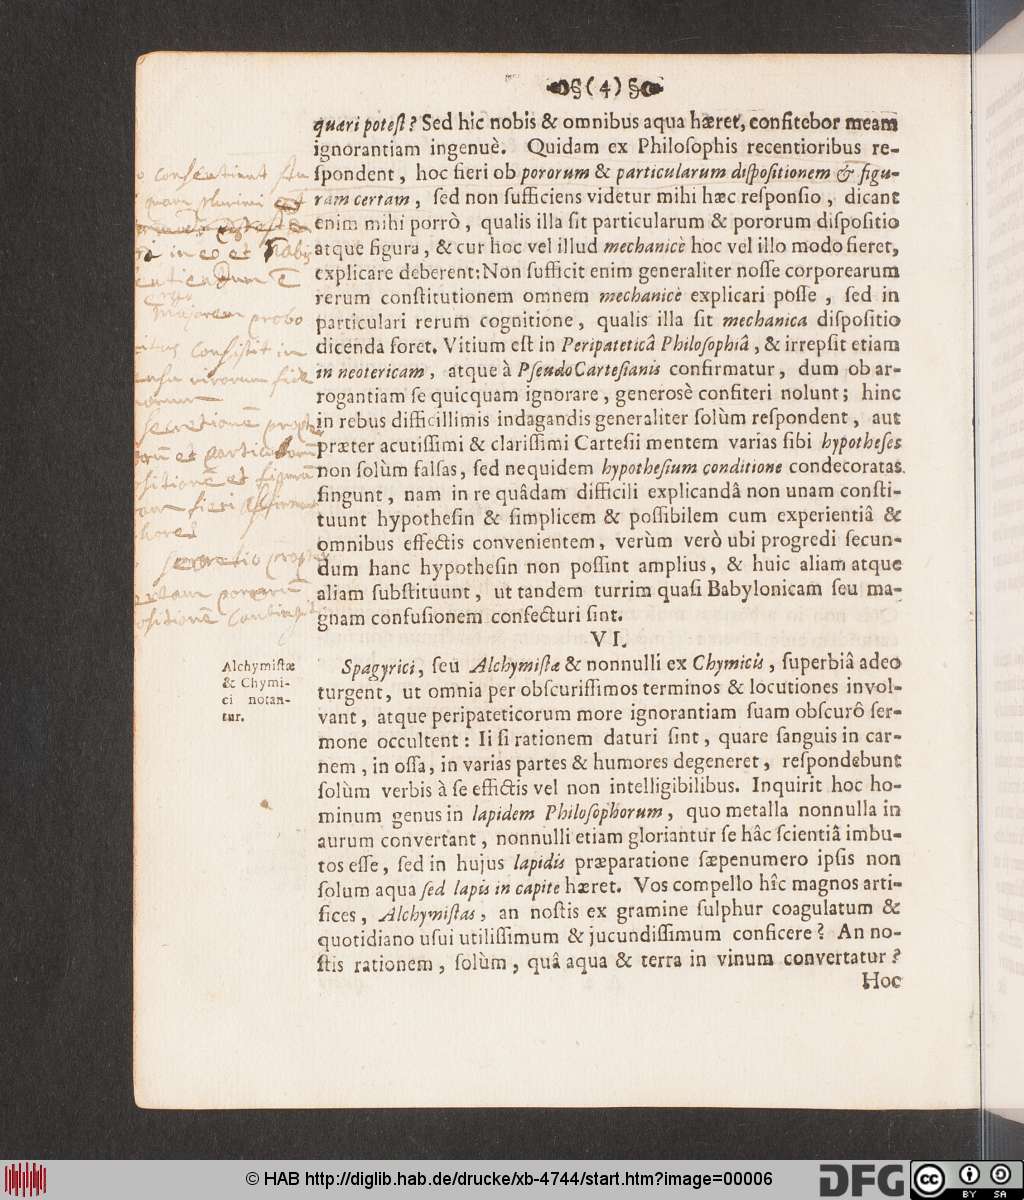 § (4) §
quæri potest? Sed hîc nobis & omnibus aqua hæret, confitebor meam
ignorantiam ingenuè. Quidam ex Philosophis recentioribus re-
spondent, hoc fieri ob pororum & particularum dispositionem & figu-
ram certam, sed non sufficiens videtur mihi hæc responsio, dicant
enim mihi porrò, qualis illa sit particularum & pororum dispositio
atque figura, & cur hoc vel illud mechanicè hoc vel illo modo fieret,
explicare deberent: Non sufficit enim generaliter nosse corporearum
rerum constitutionem omnem mechanicè explicari posse, sed in
particulari rerum cognitione, qualis illa sit mechanica dispositio
dicenda foret. Vitium est in Peripateticâ Philosophiâ, & irrepsit etiam
in neotericam, atque à Pseudo Cartesianis confirmatur, dum ob ar-
rogantiam se quicquam ignorare, generosè confiteri nolunt; hinc
in rebus difficillimis indagandis generaliter solùm respondent, aut
præter acutissimi & clarissimi Cartesii mentem varias sibi hypotheses
non solùm falsas, sed nequidem hypothesium conditione condecoratas
fingunt, nam in re quâdam difficili explicandâ non unam consti-
tuunt hypothesin & simplicem & possibilem cum experientiâ &
omnibus effectis convenientem, verùm verò ubi progredi secun-
dum hanc hypothesin non possint amplius, & huic aliam atque
aliam substituunt, ut tandem turrim quasi Babylonicam seu ma-
gnam confusionem confecturi sint.
consentiunt
plurimi
in eo et
majorem probo
consistit in
virorum
secretionē
et particularum
et figuram
fieri
secretio
pororū
VI.
Alchymistæ
& Chymi-
ci notan-
tur.
Spagyrici, seu Alchymistæ & nonnulli ex Chymicis, superbiâ adeo
turgent, ut omnia per obscurissimos terminos & locutiones invol-
vant, atque peripateticorum more ignorantiam suam obscurô ser-
mone occultent: Ii si rationem daturi sint, quare sanguis in car-
nem, in ossa, in varias partes & humores degeneret, respondebunt
solùm verbis à se effictis vel non intelligibilibus. Inquirit hoc ho-
minum genus in lapidem Philosophorum, quo metalla nonnulla in
aurum convertant, nonnulli etiam gloriantur se hâc scientiâ imbu-
tos esse, sed in hujus lapidis præparatione sæpenumero ipsis non
solum aqua sed lapis in capite hæret. Vos compello hîc magnos arti-
fices, Alchymistas, an nostis ex gramine sulphur coagulatum &
quotidiano usui utilissimum & jucundissimum conficere? An no-
stis rationem, solùm, quâ aqua & terra in vinum convertatur?
Hoc
© HAB http://diglib.hab.de/drucke/xb-4744/start.htm?image=00006
DFG
cc BY SA